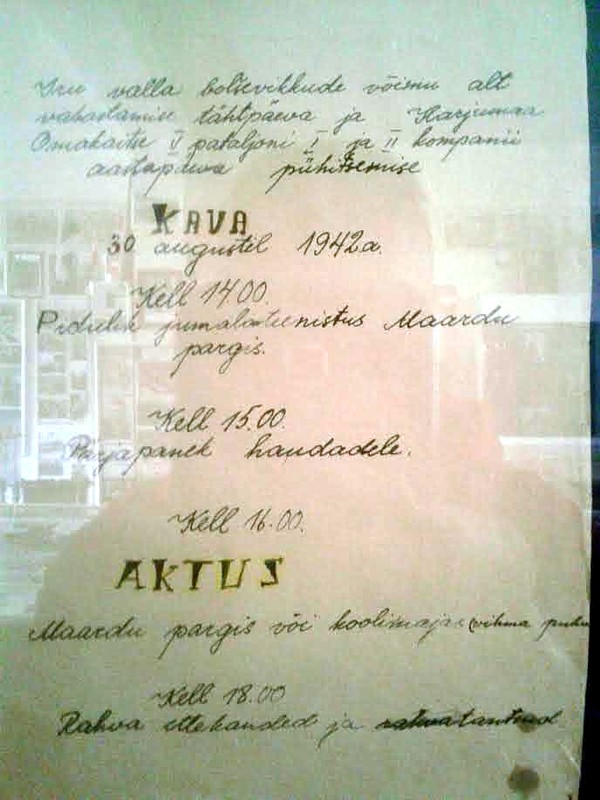 Iru valla bolsevikkude võimu alt
vabastamise tähtpäeva ja Harjumaa
Omakaitse V pataljoni I ja II kompanii
aastapäeva pühitsemise
KAVA
30 augustil 1942a.
Kell 14.00.
Pidulik jumalateenistus Maardu
pargis.
Kell 15.00.
Pärjapanek haudadele.
Kell 16.00.
AKTUS
Maardu pargis või koolimajas (vihma puhul
Kell 18.00
Rahva ettekanded ja rahvatantsud